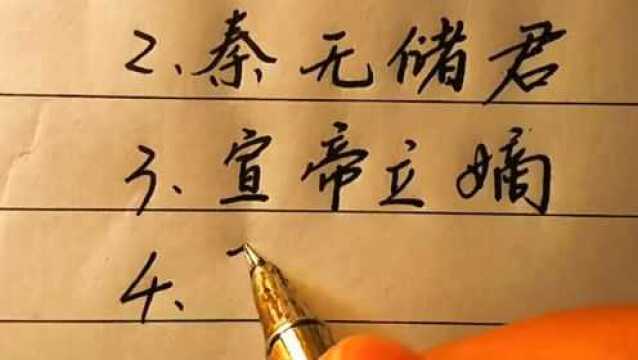 2、秦无储君
3、宣帝立嫡
4、